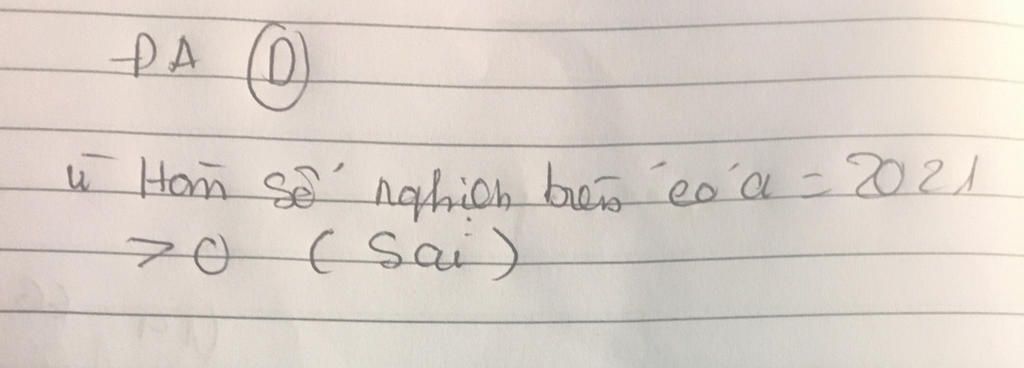 ĐA D
vì Hàm số nghịch biến có a = 2021
> 0 (Sai)